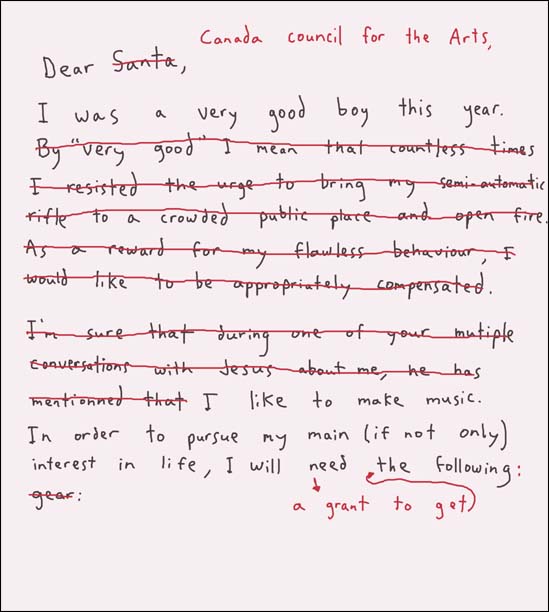 Canada council for the Arts,
Dear Santa,
I was a very good boy this year.
By "very good" I mean that countless times
I resisted the urge to bring my semi-automatic
rifle to a crowded public place and open fire.
As a reward for my flawless behaviour, I
would like to be appropriately compensated.
I'm sure that during one of your mutiple
conversations with Jesus about me, he has
mentionned that I like to make music.
In order to pursue my main (if not only)
interest in life, I will need the following:
gear:
a grant to get